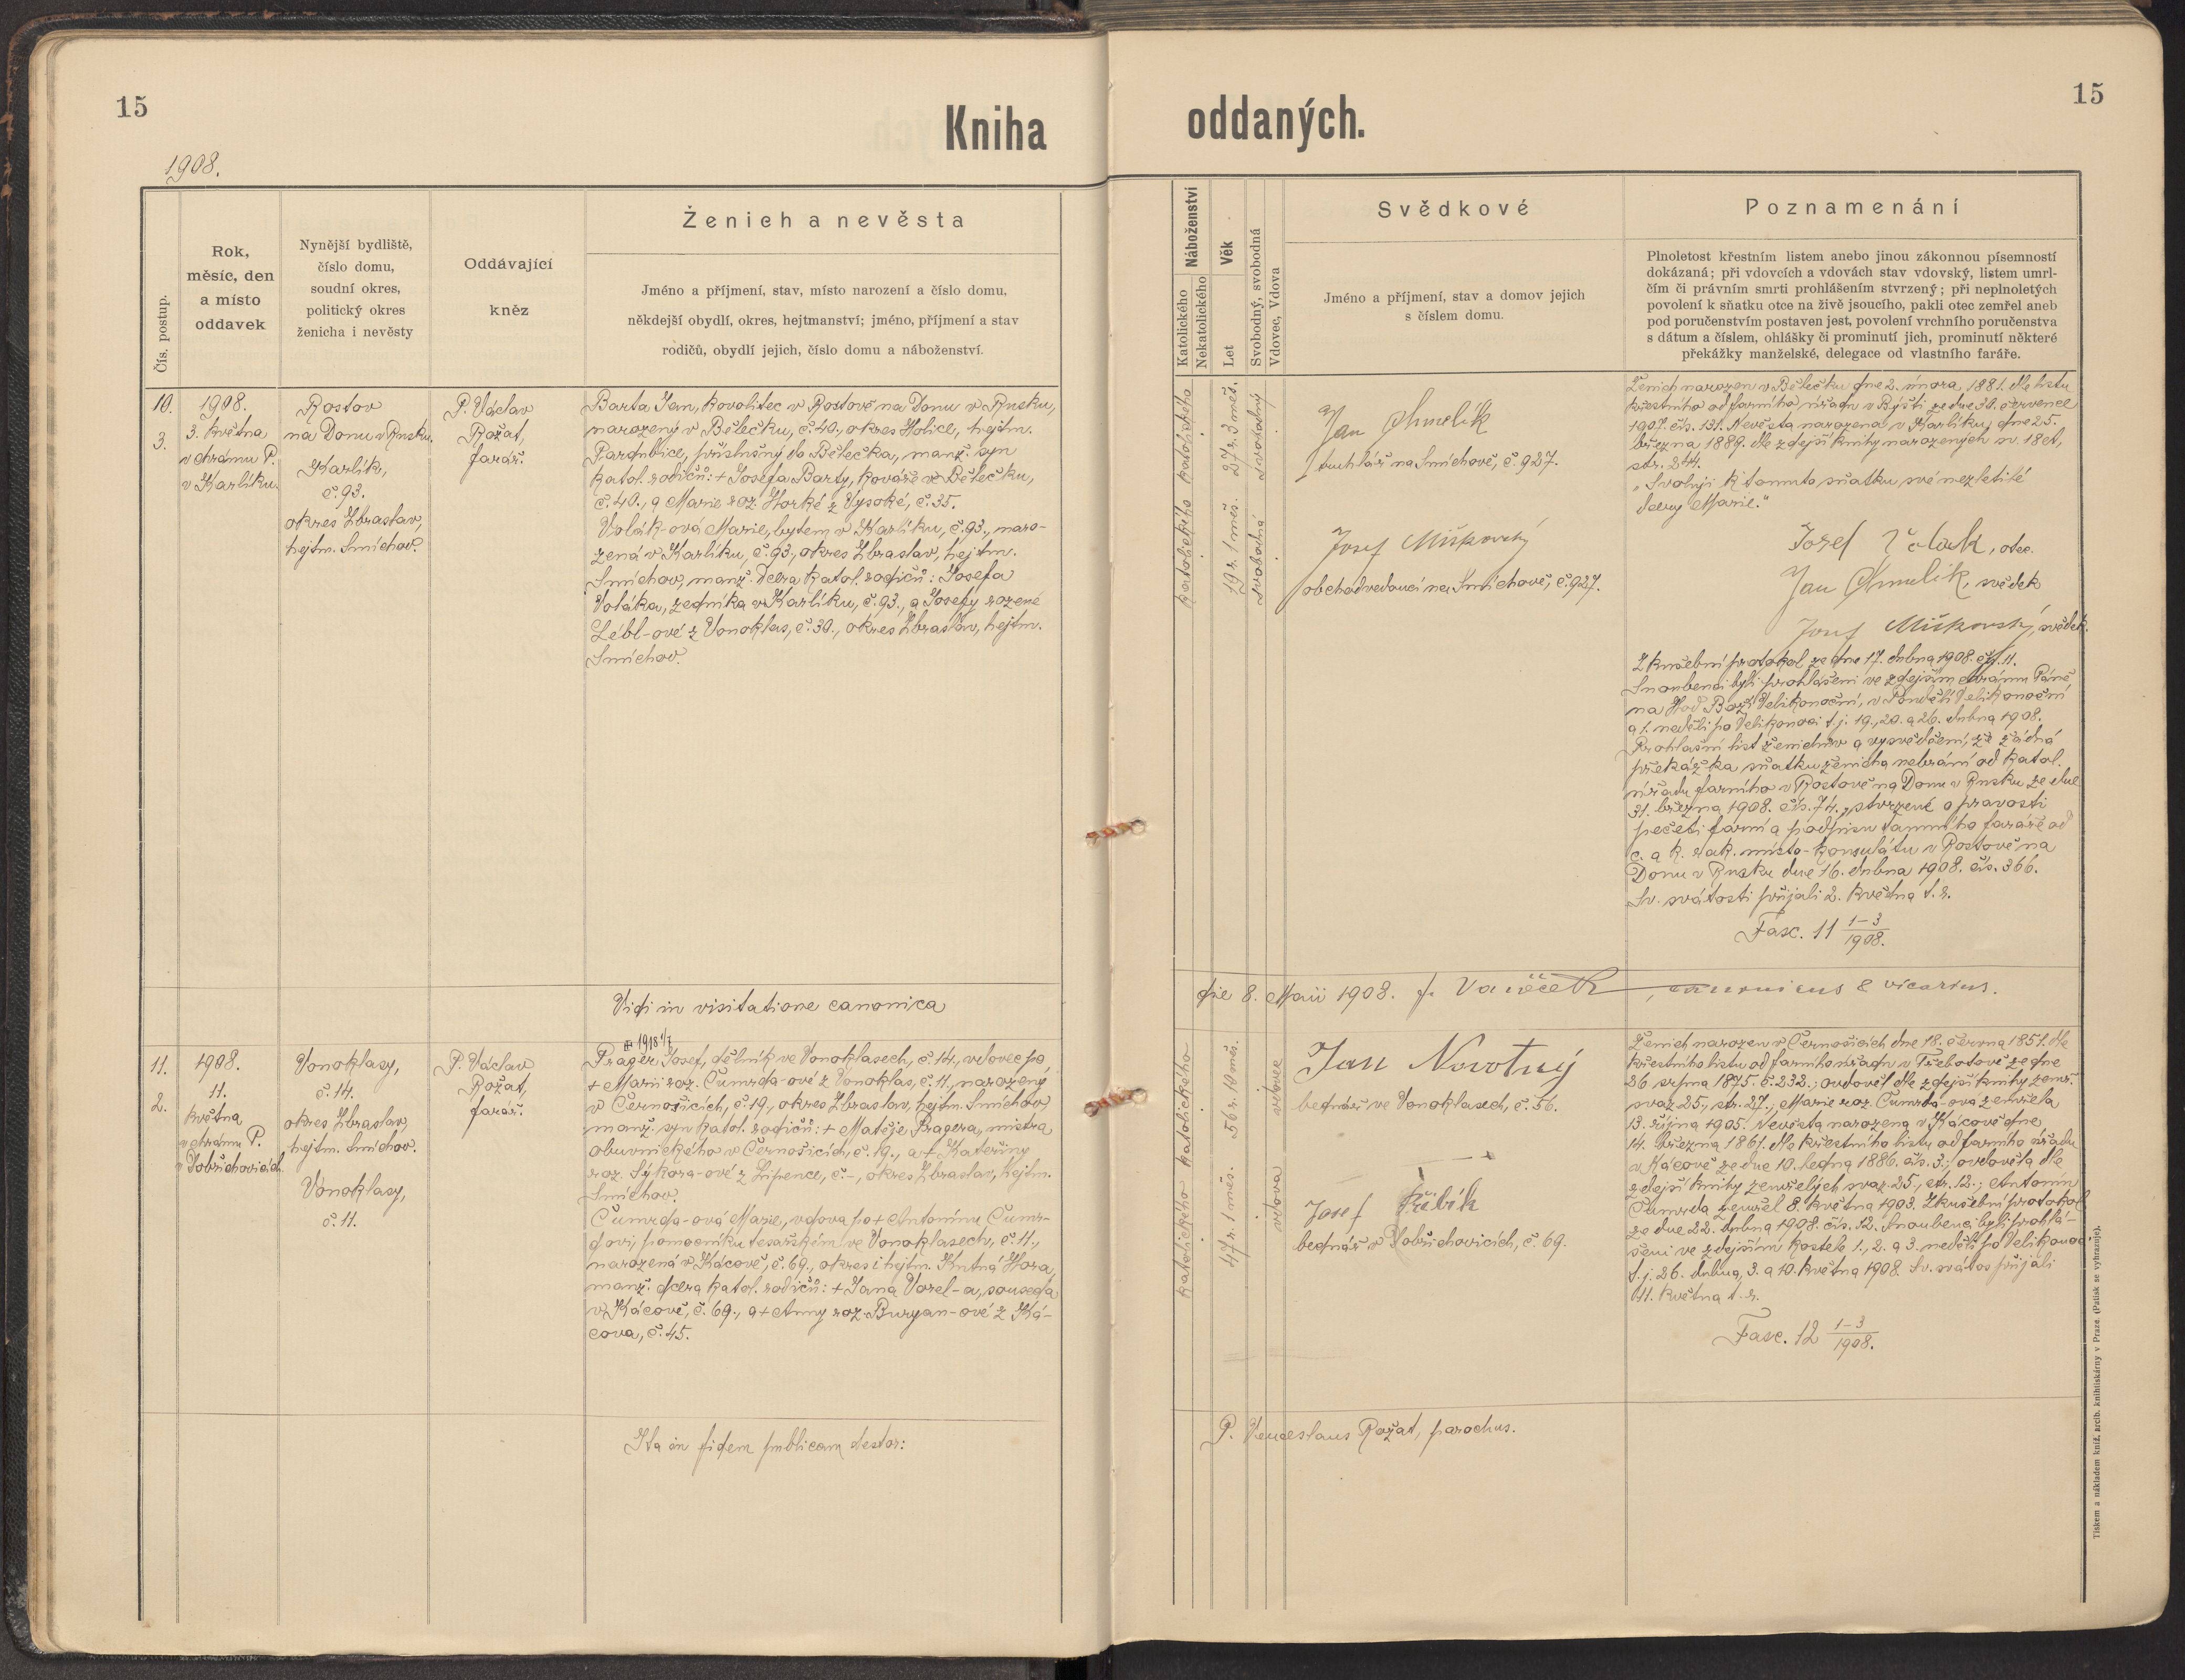 15
Kniha
1908.
Čís. postup.
Rok,
měsíc, den
a místo
oddavek
Nynější bydliště,
číslo domu,
soudní okres,
politický okres
ženicha i nevěsty
Oddávající
kněz
Ženich a nevěsta
Jméno a příjmení, stav, místo narození a číslo domu,
někdejší obydlí, okres, hejtmanství; jméno, příjmení a stav
rodičů, obydlí jejich, číslo domu a náboženství.
10.
3.
1908.
3. května
v chrámu P.
v Karlíku.
Rostov
na Donu v Rusku.
Karlík,
č. 93.
okres Zbraslav,
hejtm. Smíchov.
P. Václav
Rožat,
farář.
Barta Jan, kovolitec v Rostově na Donu v Rusku,
narozený v Bělečku, č. 40., okres Holice, hejtm.
Pardubice, příslušný do Bělečka, manž. syn
katol. rodičů: + Josefa Barty, kováře v Bělečku,
č. 40., a Marie roz. Horké z Vysoké, č. 35.
Volák-ová Marie, bytem v Karlíku, č. 93., naro-
zená v Karlíku, č. 93., okres Zbraslav, hejtm.
Smíchov, manž. dcera katol. rodičů: Josefa
Voláka, zedníka v Karlíku, č. 93., a Josefy rozené
Lébl-ové z Vonoklas, č. 30., okres Zbraslav, hejtm.
Smíchov.
Vidi in visitatione canonica
11.
2.
1908.
11.
května
v chrámu P.
v Dobřichovicích.
Vonoklasy,
č. 14.
okres Zbraslav,
hejtm. Smíchov.
Vonoklasy,
č. 11.
P. Václav
Rožat,
farář.
1918 1/7
Prager Josef, dělník ve Vonoklasech, č. 14., vdovec po
+ Marii roz. Čumrda-ové z Vonoklas, č. 11., narozený
v Černošicích, č. 19., okres Zbraslav, hejtm. Smíchov,
manž. syn katol. rodičů: + Matěje Pragera, mistra
obuvnického v Černošicích, č. 19., a + Kateřiny
roz. Sýkora-ové z Lipence, č. -, okres Zbraslav, hejtm.
Smíchov.
Čumrda-ová Marie, vdova po + Antonínu Čumr-
dovi, pomocníku tesařském ve Vonoklasech, č. 11.,
narozená v Kácově, č. 69., okres i hejtm. Kutná Hora,
manž. dcera katol. rodičů: + Jana Vorel-a, souseda
v Kácově, č. 69., a + Anny roz. Buryan-ové z Ká-
cova, č. 45.
Ita in fidem publicam testor:
15
oddaných.
Náboženství
Katolického
Nekatolického
Věk
Let
Svobodný, svobodná
Vdovec, Vdova
Svědkové
Jméno a příjmení, stav a domov jejich
s číslem domu.
Poznamenání
Plnoletost křestním listem anebo jinou zákonnou písemností
dokázaná; při vdovcích a vdovách stav vdovský, listem umrl-
čím či právním smrti prohlášením stvrzený; při neplnoletých
povolení k sňatku otce na živě jsoucího, pakli otec zemřel aneb
pod poručenstvím postaven jest, povolení vrchního poručenstva
s dátum a číslem, ohlášky či prominutí jich, prominutí některé
překážky manželské, delegace od vlastního faráře.
katolického katolického
19 r. 1 měs. 27 r. 3 měs.
svobodná svobodný
Jan Chmelík
truhlář na Smíchově, č. 927.
Josef Miškovský
obchodvedoucí na Smíchově, č. 927.
Ženich narozen v Bělečku dne 2. února 1881. dle listu
křestního od farního úřadu v Býšti ze dne 30. července
1907. čís. 131. Nevěsta narozena v Karlíku, dne 25.
března 1889. dle zdejší knihy narozených sv. 18ct,
str. 244.
„Svoluji k tomuto sňatku své nezletilé
dcery Marie."
Josef Volak, otec.
Jan Chmelík, svědek
Josef Miškovský, svědek.
Zkušební protokol ze dne 17. dubna 1908. čís. 11.
Snoubenci byli prohlášeni ve zdejším chrámu Páně
na Hod Boží Velikonoční, v Pondělí Velikonoční
a 1. neděli po Velikonoci t. j. 19., 20. a 26. dubna 1908.
Prohlašní list ženichův a vysvědčení, že žádná
překážka sňatku ženicha nebrání od katol.
úřadu farního v Rostově na Donu v Rusku ze dne
31. března 1908. čís. 74., stvrzené o pravosti
pečeti farní a podpisu tamního faráře od
c. a k. rak. místo-konsulátu v Rostově na
Donu v Rusku dne 16. dubna 1908. čís. 366.
Sv. svátosti přijali 2. května t. r.
Fasc. 11 1-3/1908.
die 8. Maii 1908. f. Vaněček, canonicus & vicarius.
katolického katolického
47 r. 1 měs. 56 r. 10 měs.
vdova vdovec
Jan Novotný
bednář ve Vonoklasech, č. 56.
Josef Hřebík
bednář v Dobřichovicích, č. 69.
Ženich narozen v Černošicích dne 18. června 1851. dle
křestního listu od farního úřadu v Třebotově ze dne
26. srpna 1875. č. 232.; ovdověl dle zdejší knihy zemř.
svaz. 25., str. 27.; Marie roz. Čumrda-ová zemřela
13. října 1905. Nevěsta narozena v Kácově dne
14. března 1861. dle křestního listu od farního úřadu
v Kácově ze dne 10. ledna 1886. čís. 3.; ovdověla dle
zdejší knihy zemřelých svaz. 25., str. 12.; Antonín
Čumrda zemřel 8. května 1903. Zkušební protokol
ze dne 22. dubna 1908. čís. 12. Snoubenci byli prohlá-
šeni ve zdejším kostele 1., 2. a 3. neděli po Velikonoci
t. j. 26. dubna, 3. a 10. května 1908. Sv. svátos přijali
11. května t. r.
Fasc. 12 1-3/1908.
P. Venceslaus Rožat, parochus.
Tiskem a nákladem kníž. arcib. knihtiskárny v Praze. (Patisk se vyhrazuje).